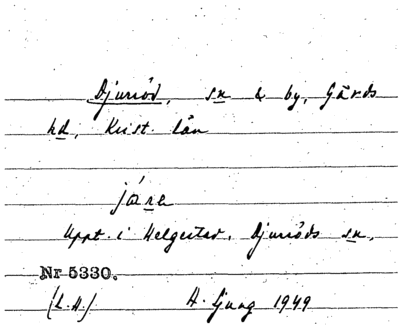 Djurröd, sn & by, Gärds
hd, Krist. län
järe
Uppt. i Helgestad, Djurröds sn.
Nr 5330.
(L.H.) H. Ljung 1949